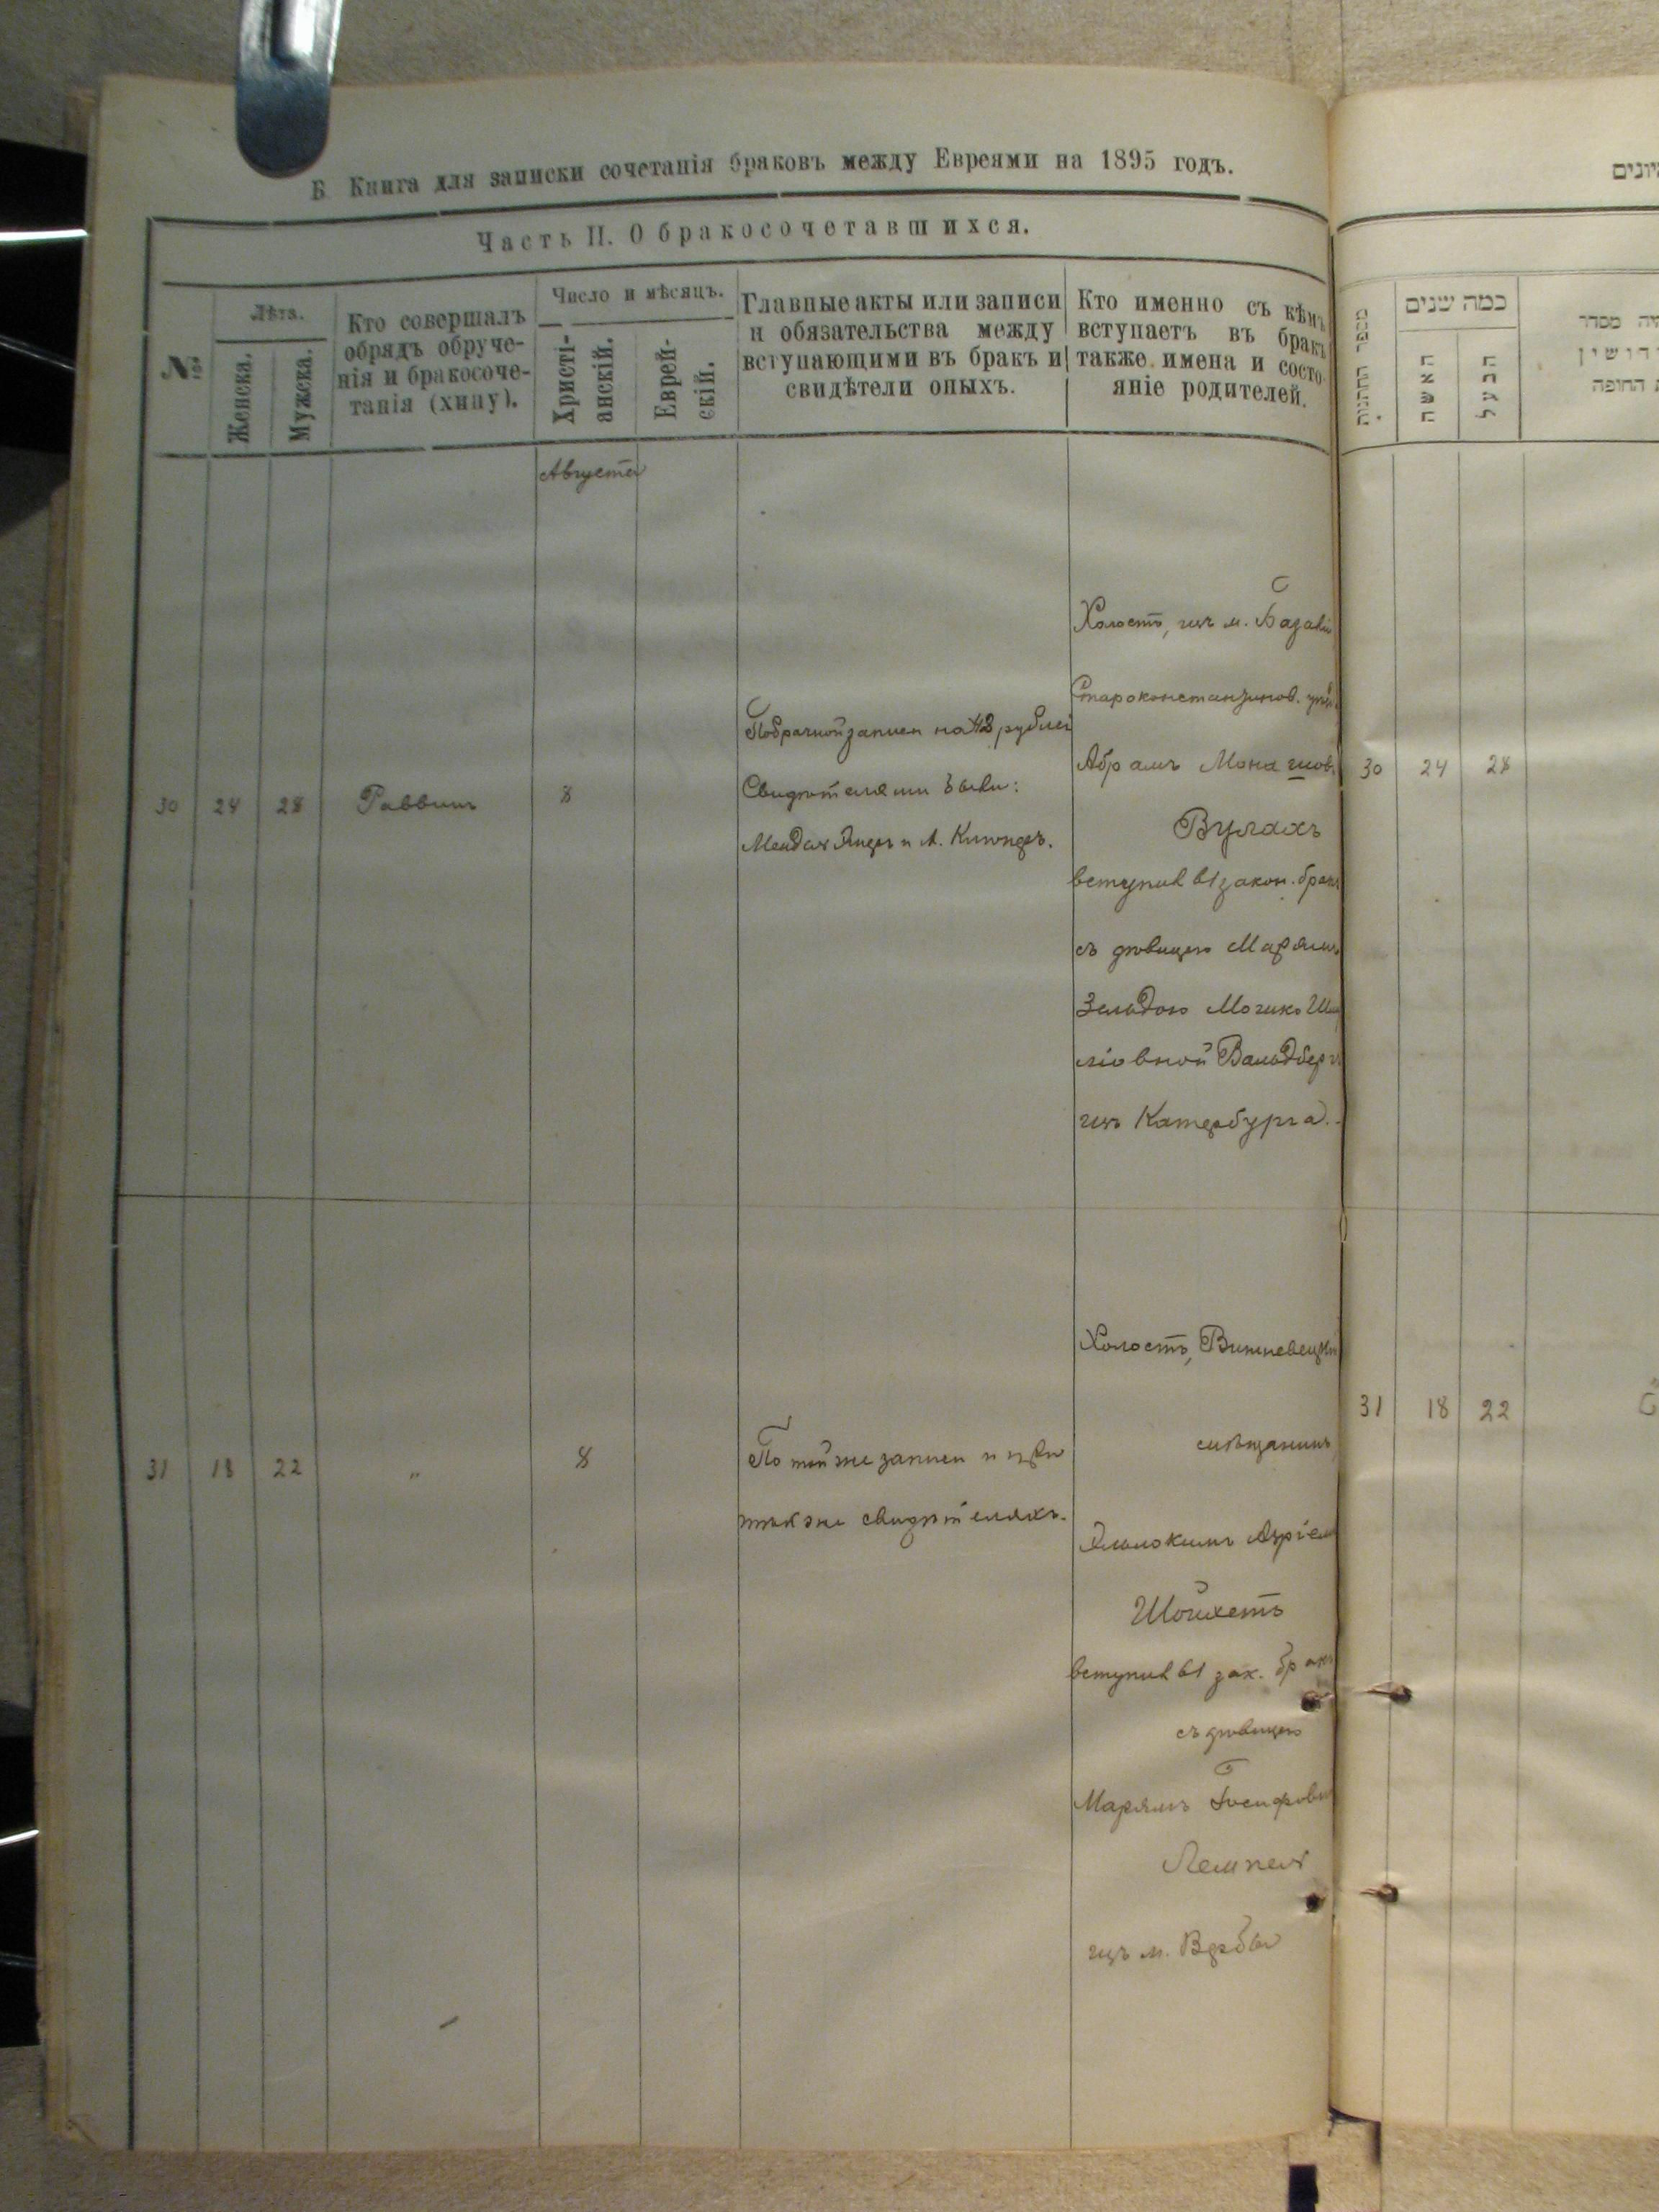 Б. Книга для записки сочетанія браковъ между Евреями на 1895 годъ.
Часть II. О бракосочетавшихся.
№
Лѣта.
Женска.
Мужска.
Кто совершалъ
обрядъ обруче-
нія и бракосоче-
танія (хипу).
Число и мѣсяцъ.
Христі-
анскій.
Еврей-
скій.
Главные акты или записи
и обязательства между
вступающими въ бракъ и
свидѣтели оныхъ.
Кто именно съ кѣмъ
вступаетъ въ бракъ
также имена и состо-
яніе родителей.
Августа
30 24 28 Раввинъ 8
По брачной записи на 48 рублей
Свидѣтелями были:
Мендель и А.
Холостъ, изъ м. Базаліи
Староконстантинов.
Абрамъ
Вулахъ
вступил в 1 закон. бракъ
съ дѣвицею Марьямъ
Зельдою
Вальдбергъ
изъ Катербурга.
31 18 22 " 8
По той же записи и при
тѣхъ же свидѣтеляхъ.
Холостъ, Вишневецкій
мѣщанинъ
Эльокимъ Азріел
Шойхетъ
вступил в 1 зак. бракъ
съ дѣвицею
Марьямъ Іосифовн
Лемпель
изъ м. Вербы
יונים
מספר החתונות
כמה שנים
האשה
הבעל
היה מסדר
דושין
החופה
30 24 28
31 18 22